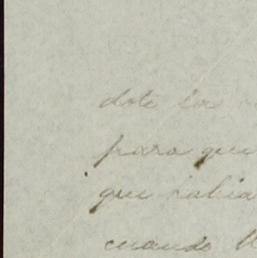 dote los
para que
que habia
cuando